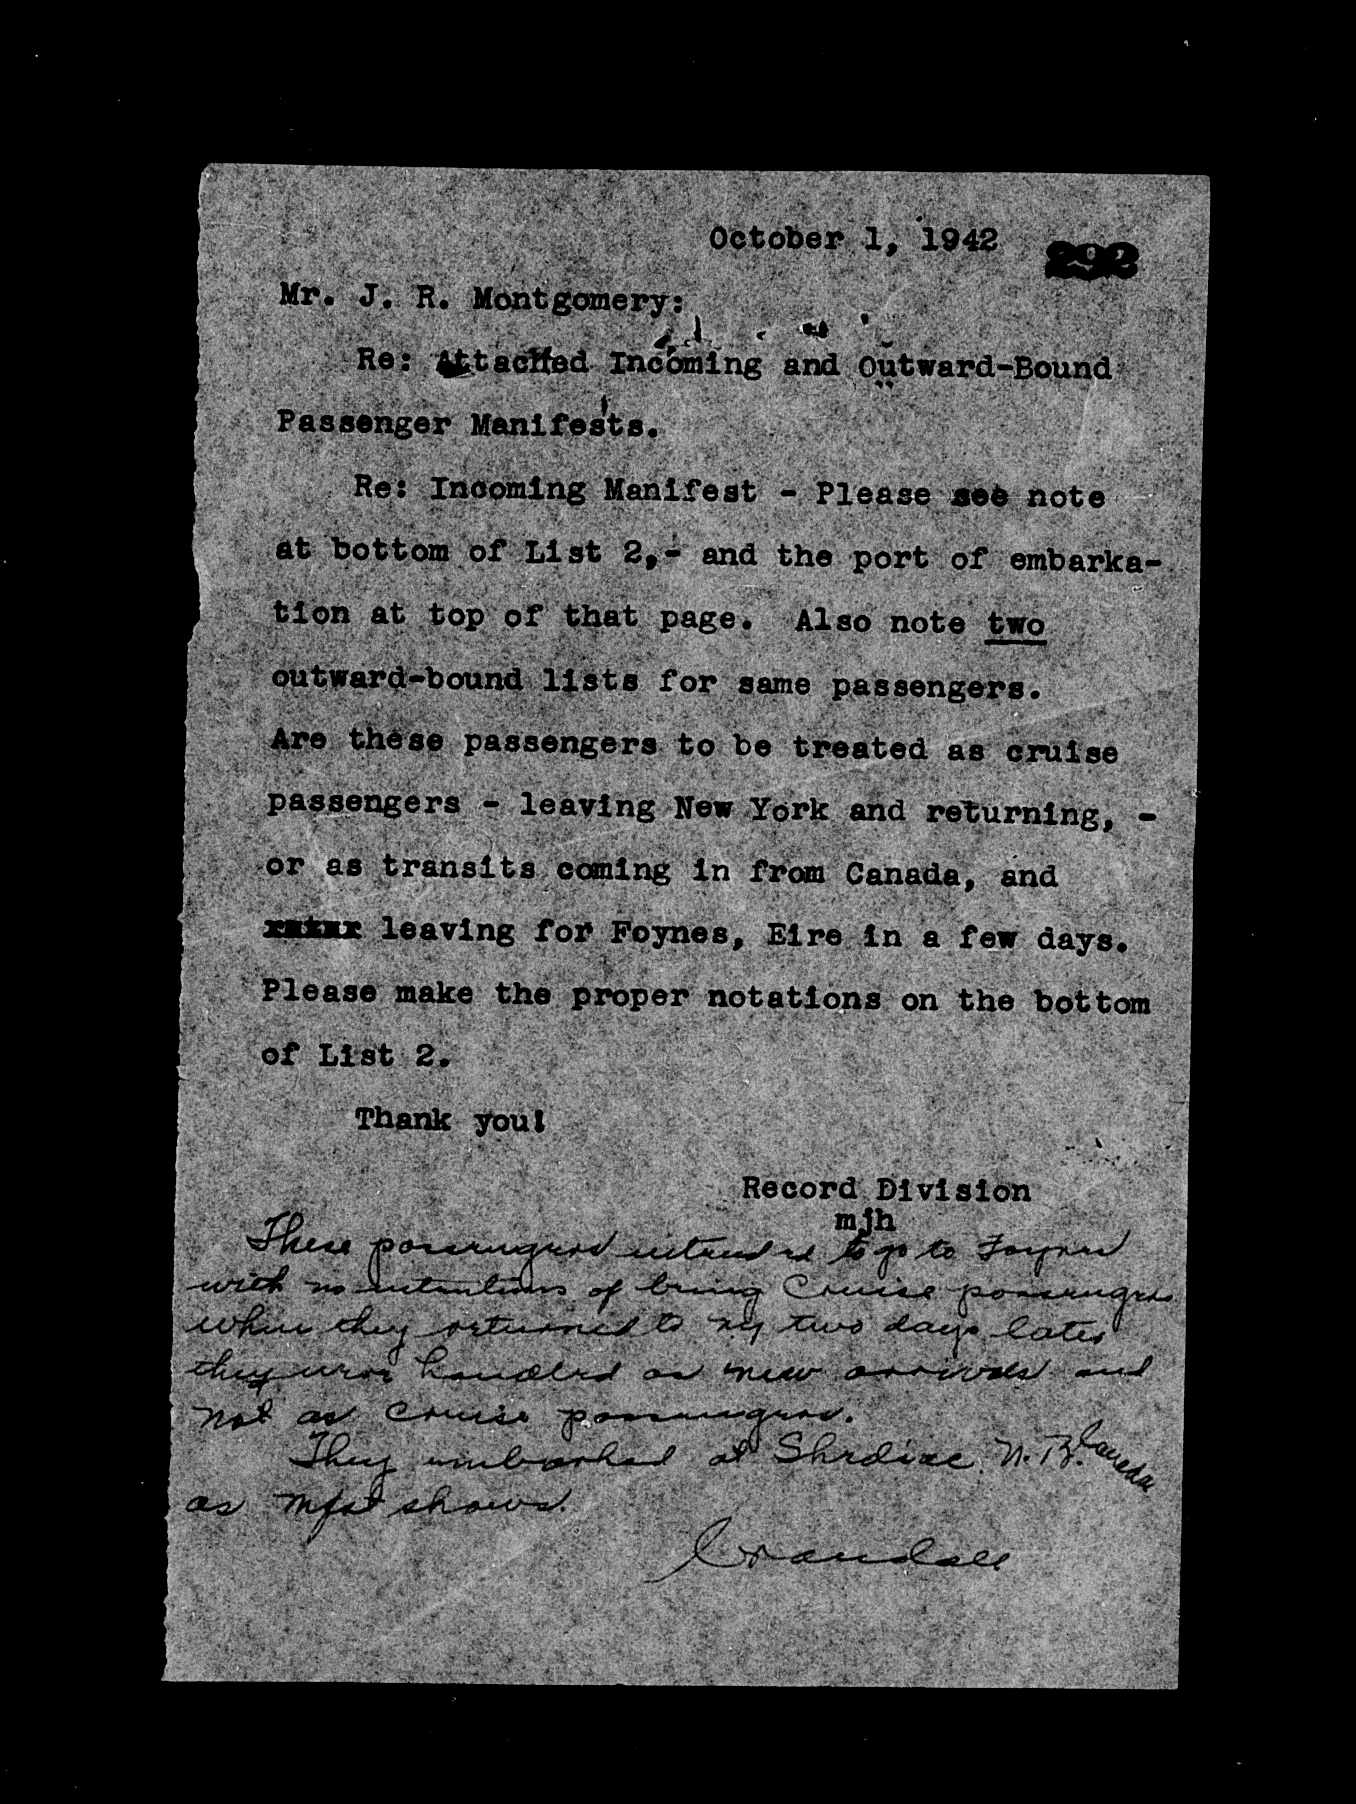 October 1, 1942
292
Mr. J. R. Montgomery:
Re: Attached Incoming and Outward-Bound
Passenger Manifests.
Re: Incoming Manifest - Please see note
at bottom of List 2,- and the port of embarka-
tion at top of that page. Also note two
outward-bound lists for same passengers.
Are these passengers to be treated as cruise
passengers - leaving New York and returning, -
or as transits coming in from Canada, and
leaving for Foynes, Eire in a few days.
Please make the proper notations on the bottom
of List 2.
Thank you!
Record Division
mjh
These passengers intended to go to Foynes
with no intentions of being Cruise passengers
when they returned to NY two days later
they were handled as new arrivals and
not as Cruise passengers.
They embarked at Shediac N.B. Canada
as mfst shows.
Crandall